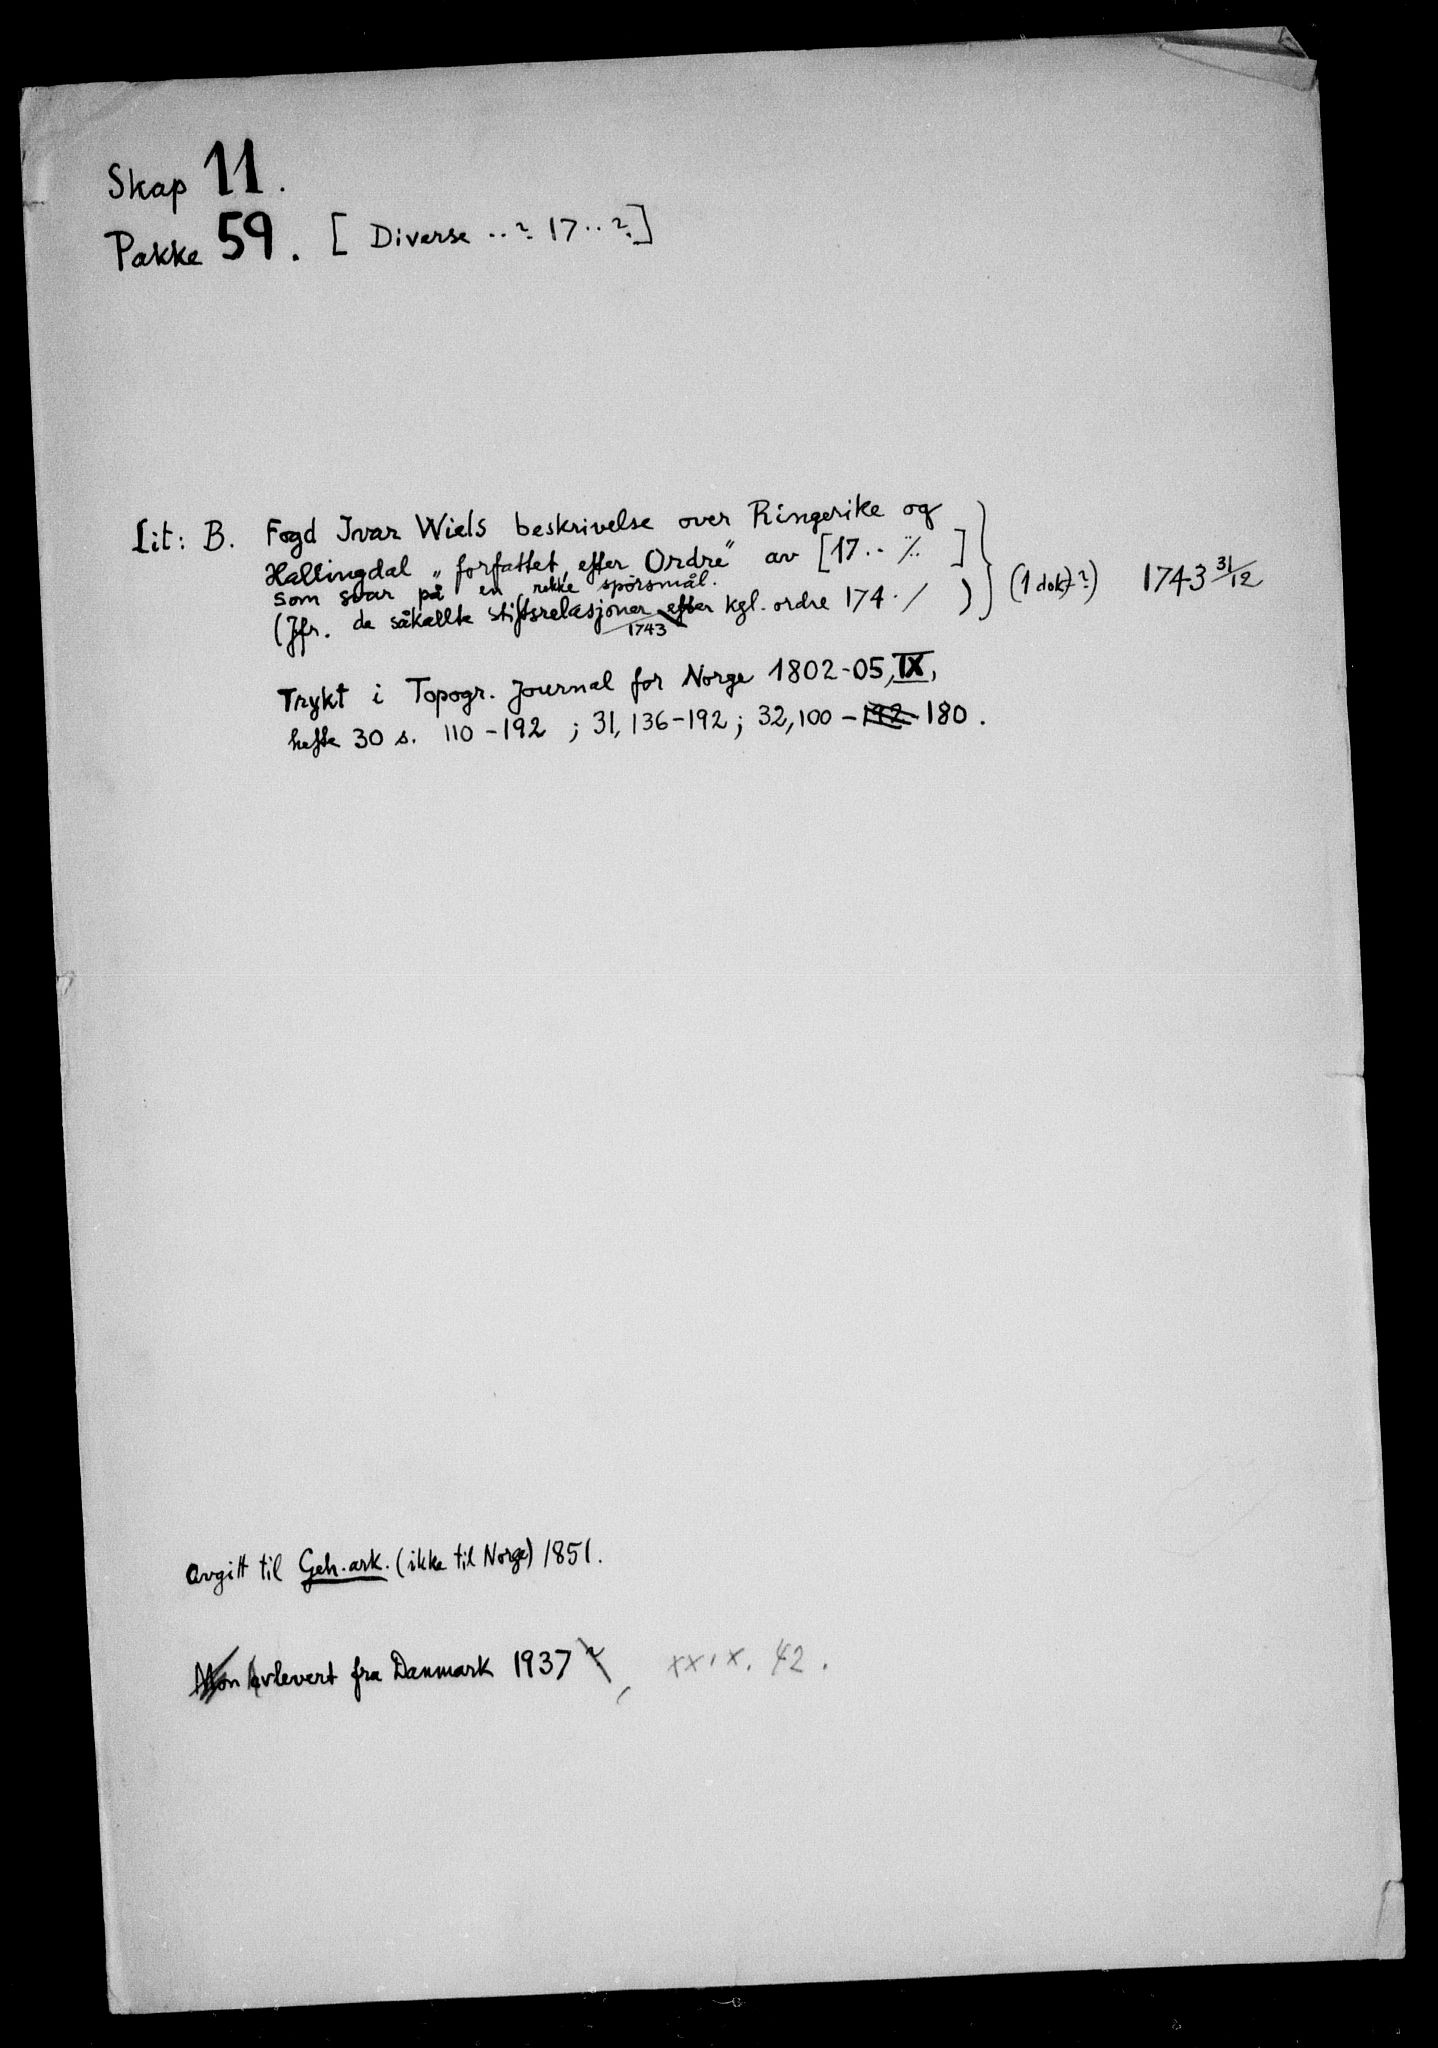 Skap 11.
Pakke 59. [ Diverse ..? 17..?]
Lit: B. Fogd Ivar Wiels beskrivelse over Ringerike og
Hallingdal „forfattet efter Ordre" av [17.. ./. ] (1 dok.?) 1743 31/12
som svar på en rekke spörsmål.
(Jfr. de såkallte stiftsrelasjoner efter kgl. ordre 174. / )
1743
Trykt i Topogr. Journal for Norge 1802-05, IX,
hefte 30 s. 110-192 ; 31, 136-192; 32, 100 - 192 180.
Avgitt til Geh. ark. (ikke til Norge) 1851.
Mon Avlevert fra Danmark 1937?, XXIX. 42.